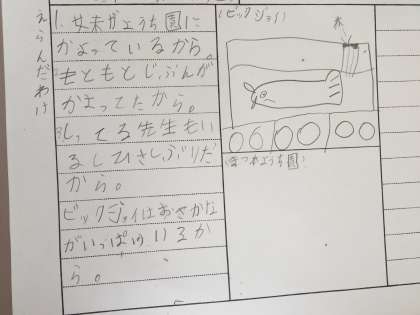 えらんだわけ
1. 女未がようち園に
かよっているから。
2もともとじぶんが
かよってたから。
3しってる先生もい
るしひさしぶりだ
から。
ビックジョイはおさかな
がいっぱいいるか
ら。
ビックジョイ
ようち園